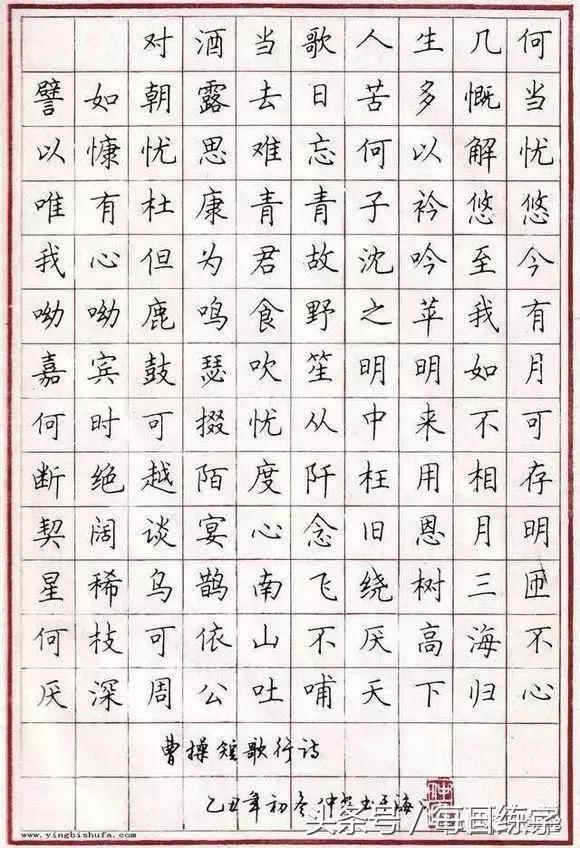 对酒当歌人生几何
譬如朝露去日苦多慨当
以慷忧思难忘何以解忧
唯有杜康青青子衿悠悠
我心但为君故沈吟至今
呦呦鹿鸣食野之苹我有
嘉宾鼓瑟吹笙明明如月
何时可掇忧从中来不可
断绝越陌度阡枉用相存
契阔谈宴心念旧恩月明
星稀乌鹊南飞绕树三匝
何枝可依山不厌高海不
厌深周公吐哺天下归心
曹操短歌行诗
乙丑年初冬仲书于海
头条号/每日练字
www.yingbishufa.com